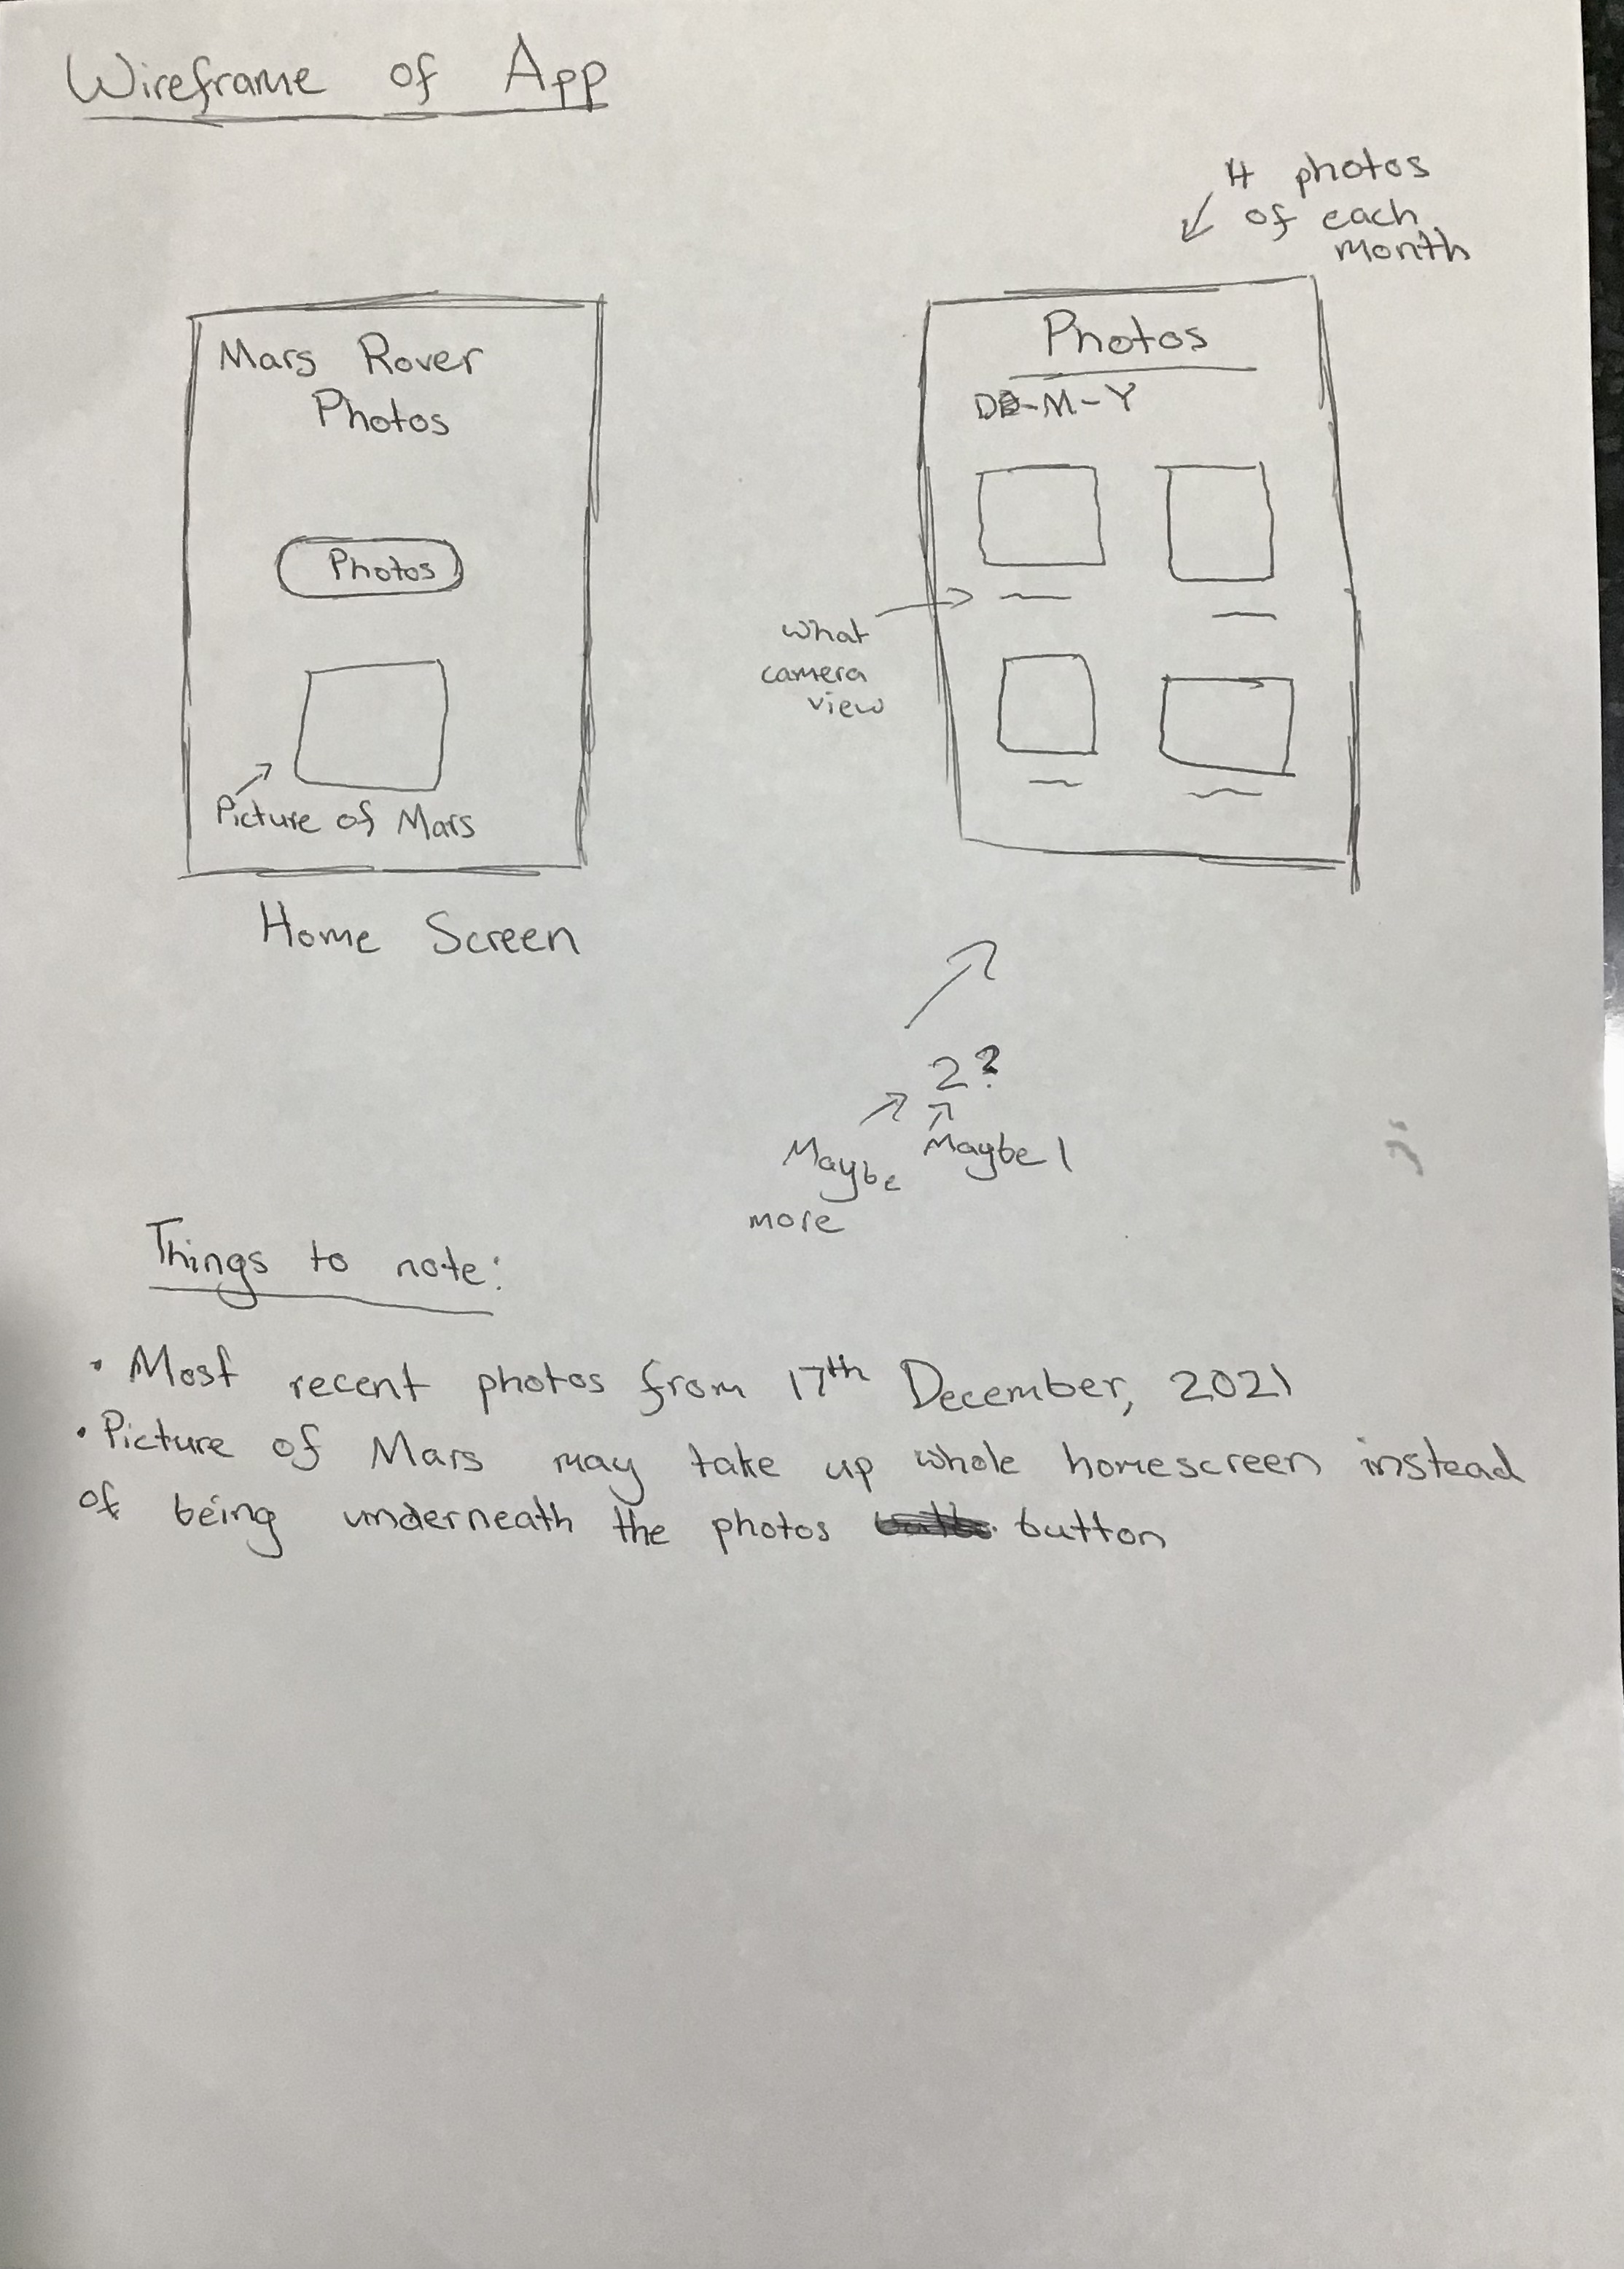 Wireframe of App
4 photos
of each
month
Mars Rover
Photos
Photos
Picture of Mars
Home Screen
Photos
D-M-Y
what
camera
view
2?
Maybe
more
Maybe 1
Things to note:
• Most recent photos from 17th December, 2021
• Picture of Mars may take up whole homescreen instead
of being underneath the photos button